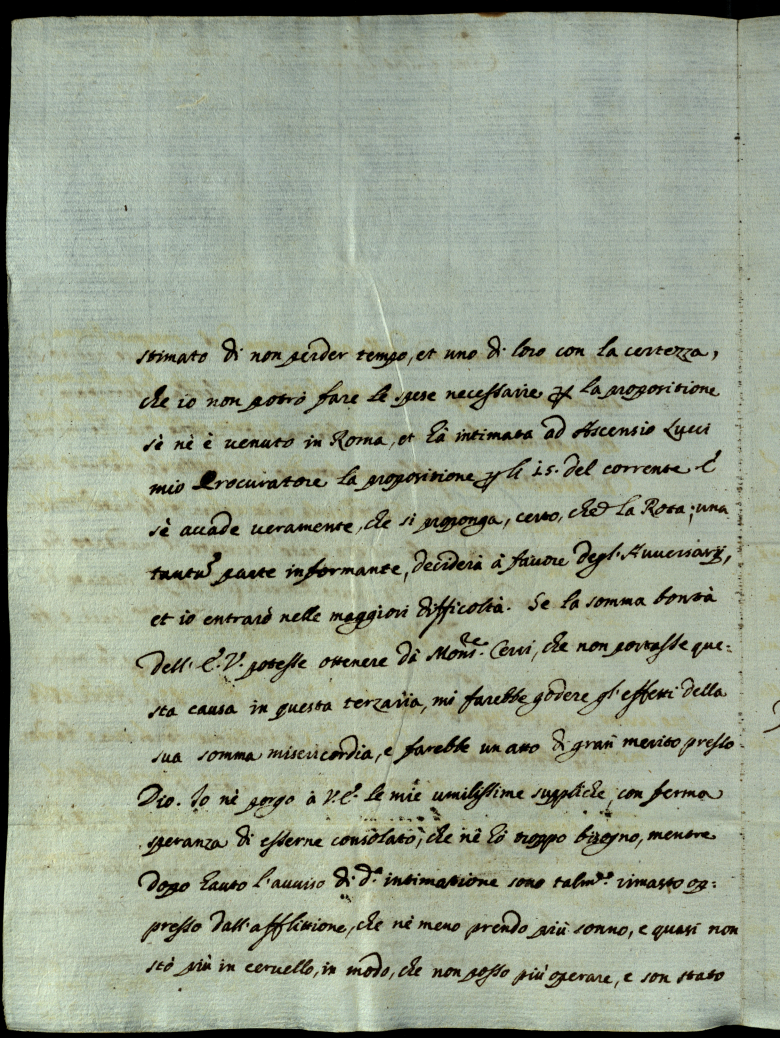 stimato di non perder tempo, et uno di loro con la certezza,
che io non potrò fare le spese necessarie ꝑ la propositione
sè nè è venuto in Roma, et hà intimata ad Ascensio Lucci
mio Procuratore la propositione ꝑ li 15. del corrente. E'
sè accade veramente, che si proponga, certo, che la Rota, una
tantũ parte informante, deciderà à favore degl'Avversarij,
et io entrarò nelle maggiori difficoltà. Se la somma bontà
dell'E. V. potesse ottenere dà Mons.re Cerri, che non portasse que=
sta causa in questa terzaria, mi farebbe godere gl'effetti della
sua somma misericordia, e farebbe un atto di gran merito presso
Dio. Io nè porgo à V. E. le mie umilissime suppliche, con ferma
speranza di esserne consolato, che nè hò troppo bisogno, mentre
dopo hauto l'avviso di d.a intimatione sono talm.te rimasto op=
presso dall'afflittione, che nè meno prendo più sonno, e quasi non
stò più in cervello, in modo, che non posso più operare, e son stato